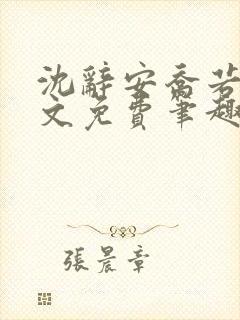 沈辭安喬若
文免費筆趣
張晨章